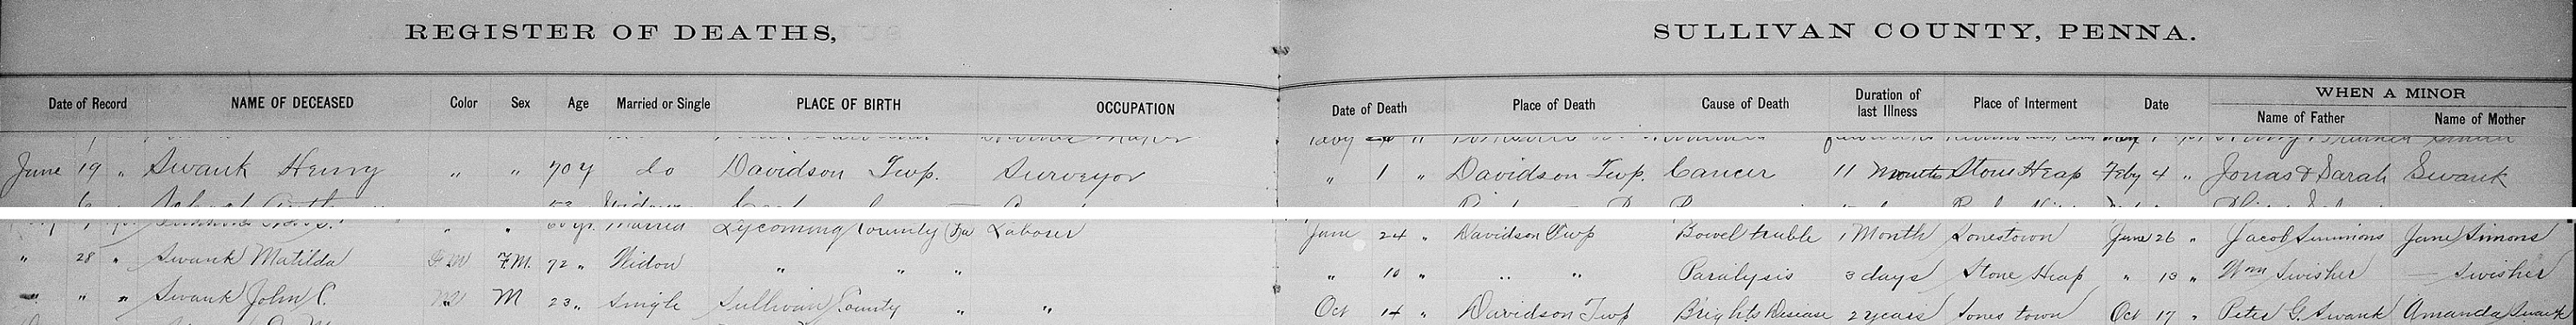 REGISTER OF DEATHS, SULLIVAN COUNTY, PENNA.
WHEN A MINOR
Date of Record NAME OF DECEASED Color Sex Age Married or Single PLACE OF BIRTH OCCUPATION Date of Death Place of Death Cause of Death Duration of last Illness Place of Interment Date Name of Father Name of Mother
June 19 " Swank Henry " " 70 y do Davidson Twp. Surveyor " 1 " Davidson Twp. Cancer 11 Months Stone Heap Feby 4 " Jonas & Sarah Swank
" " Married Lycoming County Pa Laborer June 24 " Davidson Twp Bowel truble 1 Month Sonestown June 26 " Jacob Simmons Jane Simons
" 28 " Swank Matilda F.M. 72 " Widow " " " " 10 " " " Paralysis 3 days Stone Heap " 13 " Wm Swisher — Swisher
" " " Swank John C. M 23 " Single Sullivan County " " Oct 14 " Davidson Twp Brights Disease 2 years Sones town Oct 17 " Peter G. Swank Amanda Swank